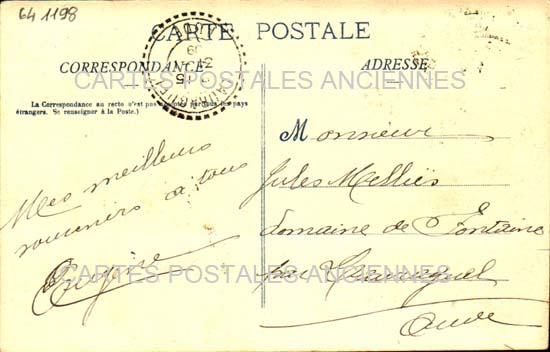 64 1198
CARTE POSTALE
CORRESPONDANCE
ADRESSE
CARTES POSTALES ANCIENNES
La Correspondance au recto n'est pas acceptée par tous les pays
étrangers. Se renseigner à la Poste.)
Mes meilleurs
souvenirs à tous
Monsieur
Jules Melliès
domaine de Fontaine
par
Aude
CARTES POSTALES ANCIENNES